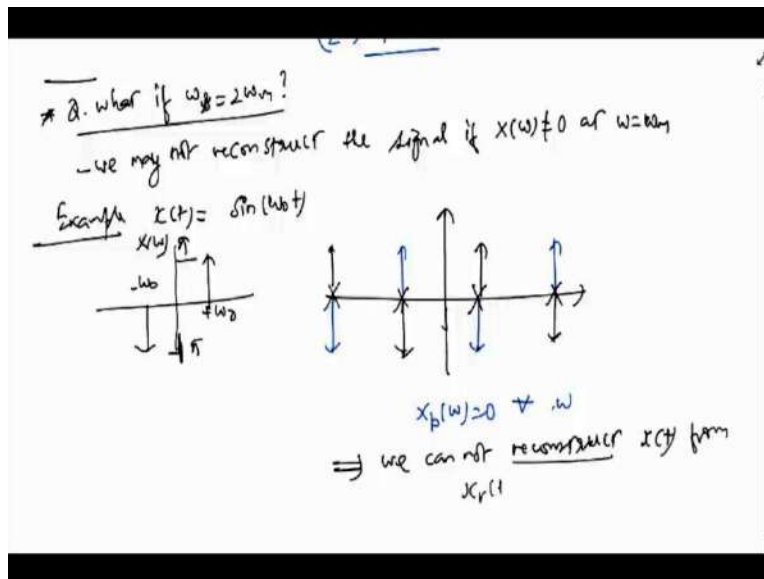 * Q. what if ws=2wm?
- we may not reconstruct the signal if X(w)≠0 at w=wm
Example x(t) = sin(wot)
X(w) π
-wo
+wo
-π
xp(w)=0 ∀ w
⇒ we can not reconstruct x(t) from
xr(t